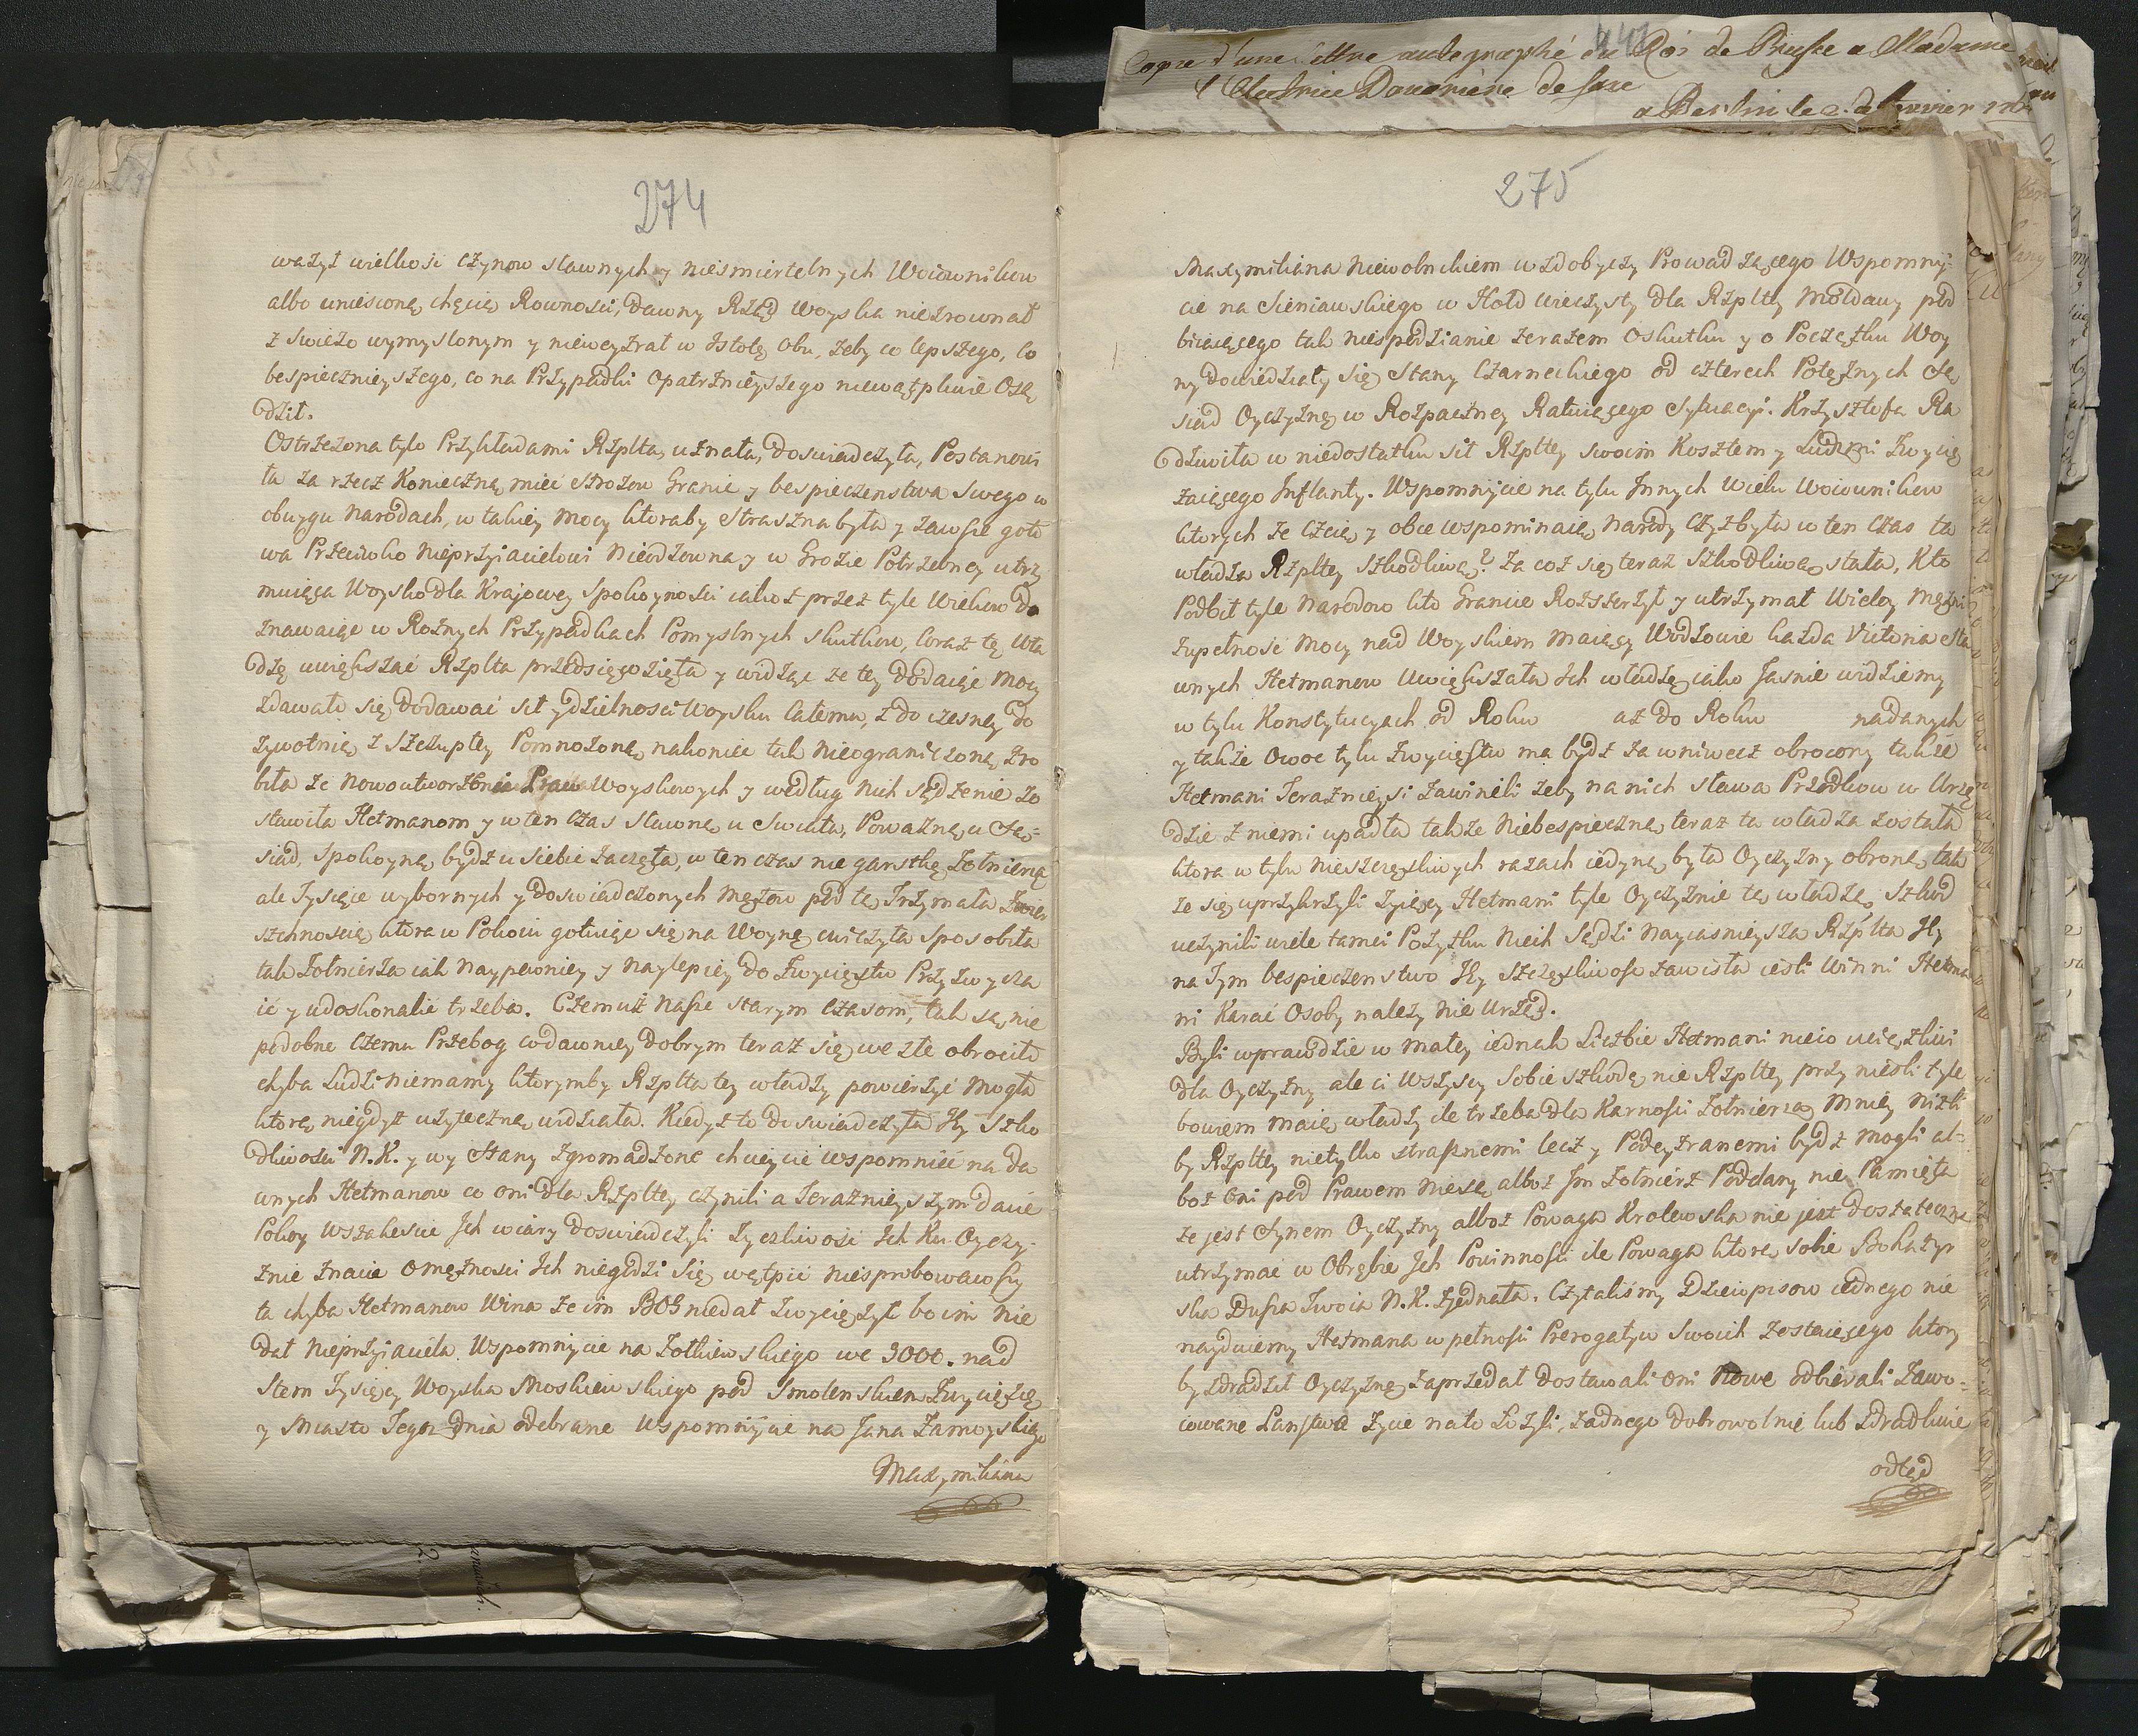 274
ważył wielkosć czynow sławnych y niesmiertelnych Woiownikow
albo uniesioną chęcią Rownosci, dawny Rząd woyska niezrownał
z swieżo wymyslonym y nieweyzrał w Istotę Obu, żeby co lepszego, co
bespiecznieyszego, co na Przypadki opatrznieyszego niewątpliwie Osą
dził.
Ostrzeżona tylo Przykładami Rzplta, uznała, doswiadczyła, Postanowi
ła za rzecz Konieczną miec strożow Granic y bespieczenstwa Swego w
obuygu Narodach, w takiey Mocy ktoraby straszna była y zawsze goto
wa Przeciwko Nieprzyiacielowi
muiąca Woysko dla Krajowey Spokoynosci iakoż przez tyle Wiekow do
znawaiąc w Rożnych Przypadkach Pomyslnych skutkow, coraz tę Wła
dzę uwiększać Rzplta przedsięwzięła y widząc że tey dodaiąc Mocy
zdawało się dodawać sił y dzielnosci Woysku całemu, z do czesney do
żywotnią z szczupłey Pomnożoną, nakoniec tak nieograniczoną zro
biła że nowoutworzenie Praw Woyskowych y według nich sądzenie zo
stawiła Hetmanom y w ten czas sławną u Swiata, Poważną u Są=
siad, Spokoyną bydź u siebie zaczęła, w ten czas nie garstkę Żołnierzą
ale Tysiące wybornych y doswiadczonych Mężow pod tą Trzymała Zwie
szchnoscią ktora w Pokoiu gotuiąc się na Woynę cwiczyła sposobiła
tak Żołnierza iak naypewniey y naylepiey do Zwycięstw Przyzwycza
ić y udoskonalić trzeba. Czemuż nasze starym czasom, tak są nie
podobne czemu Przebog co dawniey dobrym teraz się we złe obrociło
chyba Ludzi niemamy ktorymby Rzplta tey władzy powierzyć mogła
ktorą niegdyż użyteczną widziała. Kiedyż to doswiadczyła Jey Szko
dliwosci N.K. y wy Stany zgromadzone chcieycie wspomnieć na da
wnych Hetmanow co oni dla Rzpltey czynili a Teraznieyszym dacie
Pokoy wszakescie Ich wiary doswiadczyli życzliwosć Ich Ku Oyczy=
znie znacie o mężnosci Ich niegodzi się wątpić niesprobowawszy
ta chyba Hetmanow Wina że im BOG niedał zwyciężyć bo im nie
dał Nieprzyiaciela. Wspomnyicie na Żołkiewskiego we 3000. nad
stem Tysięcy Woyska Moskiewskiego pod Smolenskiem Zwycięzcę
y Miasto Tegoż dnia odebrane Wspomnyicie na Jana Zamoyskiego
Maxymiliana
275
Maxymiliana niewolnikiem w zdobyczy Prowadzącego Wspomny=
cie na Sieniawskiego w Hołd wieczysty dla Rzpltey Mołdawy pod
biiaiącego tak niespodzianie że razem o skutku y o Początku Woy
ny dowiedziały się Stany Czarneckiego od czterech Potężnych Są
siad Oyczyznę w Rozpaczney Ratuiącego Sytuacyi. Krzysztofa Ra
dziwiła w niedostatku sił Rzpltey swoim Kosztem y Ludzmi Zwycię
żaiącego Inflanty. Wspomnyicie na tylu Innych Wielu Woiownikow
ktorych ze czcią y obce wspominaią Narody czyż była w ten czas ta
władza Rzpltey Szkodliwą? za coż się teraz szkodliwą stała, Kto
Podbił tyle Narodow kto Granice Rozszerzył y utrzymał Wielcy Mężni
zupełnosć Mocy nad Woyskiem maiący Wodzowie każda Victoria Sła
wnych Hetmanow uwiększała Ich władzę, iako Jasnie widziemy
w tylu Konstytucyach od Roku aż do Roku nadanych
y także Owoc tylu zwycięstw ma bydź za wniwecz obrocony także
Hetmani Teraznieysi zawinili żeby na nich sława Przodkow w Urzę
dzie z niemi upadła także Niebespieczną teraz ta władza została
ktora w tylu nieszczęsliwych razach iedyną była Oyczyzny obroną, tak
że się uprzykrzyli żyiący Hetmani tyle Oyczyznie tą władzą Szkod
uczynili wiele tamci Pożytku Niech Sądzi Nayiasnieysza Rzplta Jey
na Tym bespieczenstwo Jey szczęsliwosc zawisła iesli Winni Hetma
ni Karać Osoby należy nie Urząd.
Byli wprawdzie w małey iednak Liczbie Hetmani nieco uciążliwi
dla Oyczyzny ale ci wszyscy sobie szkodę nie Rzpltey przyniesli tyle
bowiem maią władzy ile trzeba dla Karnosci Żołnierza Mniey niżli
by Rzpltey nietylko strasznemi lecz y Podeyzranemi bydź mogli al=
boż Oni pod Prawem niesą alboż Im Żołnierz Poddany nie Pamięta
że jest Synem Oyczyzny alboż Powaga Krolewska nie jest dostateczną
utrzymać w Obrębie Ich Powinnosci ile Powaga ktorą sobie Bohatyr
ska Dusza Twoia N.K. zjednała. Czytalismy Dzieiopisow iednego nie
nayduiemy Hetmana w pełnosci Prerogatyw Swoich zostaiącego ktory
by zdradził Oyczyznę zaprzedał dostawali oni Nowe odbierali Zawo=
iowane Panstwa życie na to Łożyli, żadnego dobrowolnie lub zdradliwie
odtąd
Copie d'une lettre autographé du Roi de Prusse a Madame
l'Electrice Douairiere de Saxe